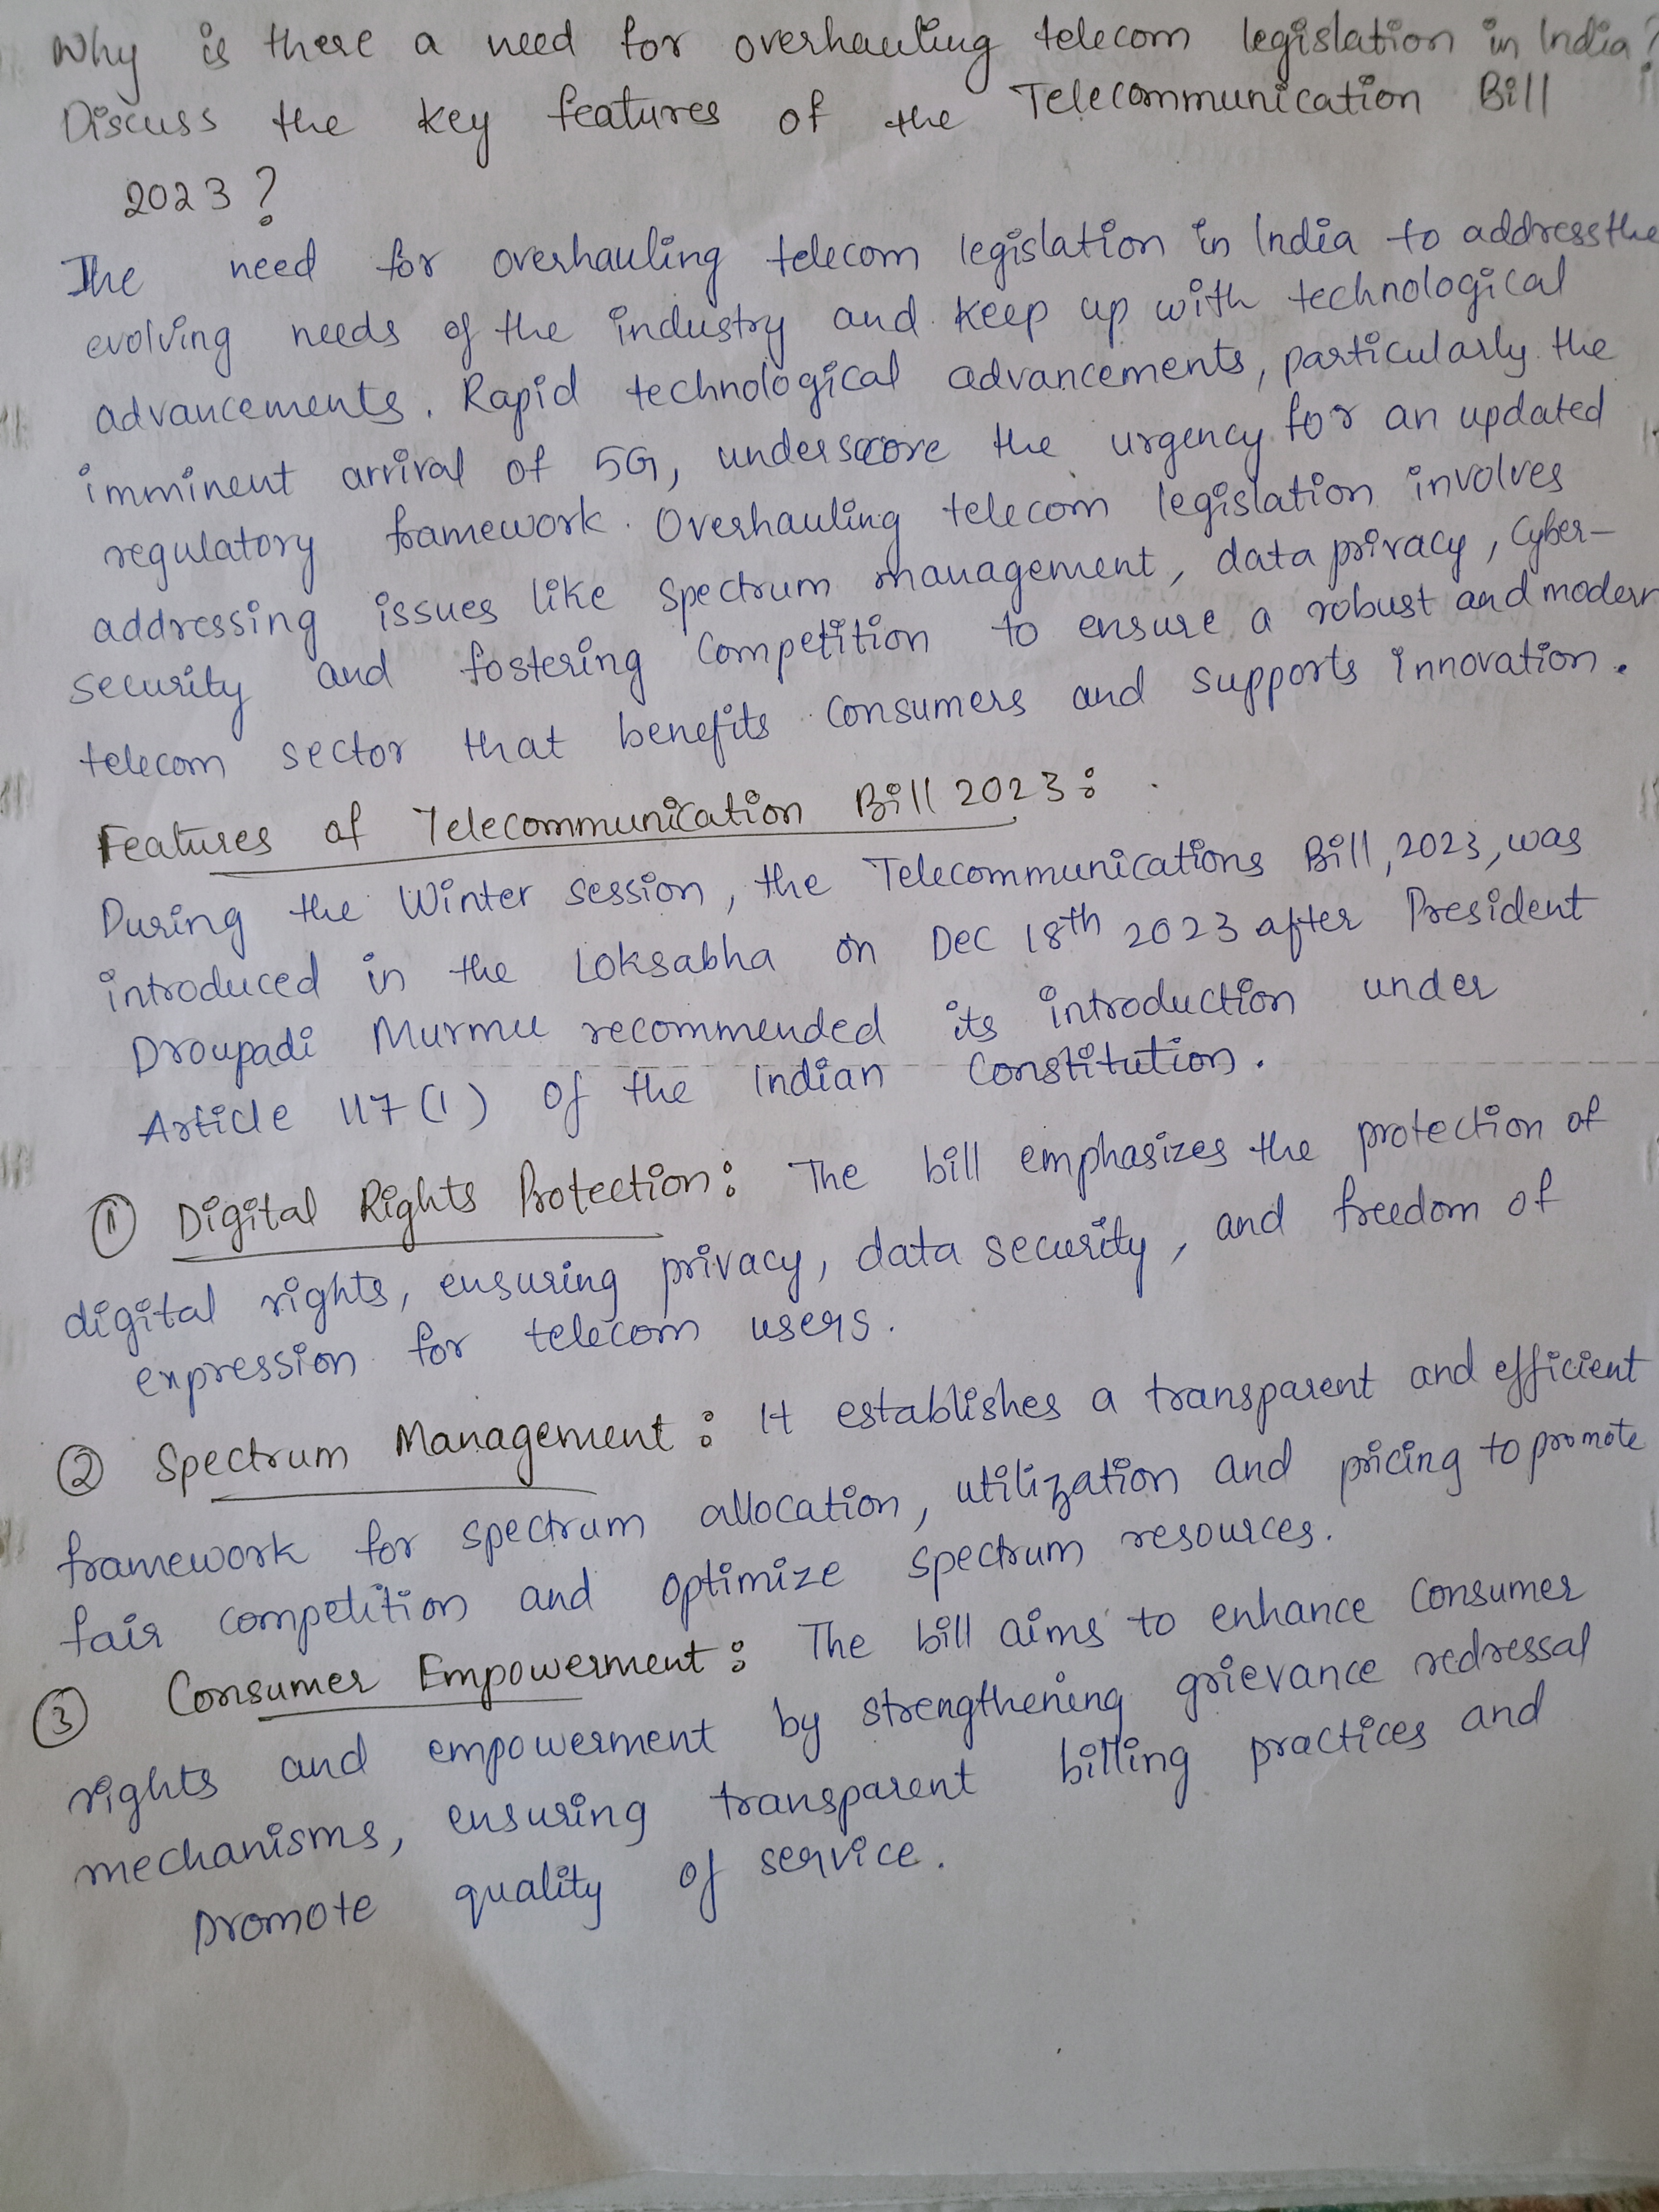 Why is there a need for overhauling telecom legislation in India?
Discuss the key features of the Telecommunication Bill
2023?
The need for overhauling telecom legislation in India to address the
evolving needs of the industry and keep up with technological
advancements. Rapid technological advancements, particularly the
imminent arrival of 5G, underscore the urgency for an updated
regulatory framework. Overhauling telecom legislation involves
addressing issues like spectrum management, data privacy, Cyber-
security and fostering competition to ensure a robust and modern
telecom sector that benefits consumers and supports innovation.
Features of Telecommunication Bill 2023:
During the Winter session, the Telecommunications Bill, 2023, was
introduced in the Loksabha on Dec 18th 2023 after President
Droupadi Murmu recommended its introduction under
Article 117(1) of the Indian Constitution.
① Digital Rights Protection: The bill emphasizes the protection of
digital rights, ensuring privacy, data security, and freedom of
expression for telecom users.
② Spectrum Management: It establishes a transparent and efficient
framework for spectrum allocation, utilization and pricing to promote
fair competition and optimize spectrum resources.
③ Consumer Empowerment: The bill aims to enhance consumer
rights and empowerment by strengthening grievance redressal
mechanisms, ensuring transparent billing practices and
promote quality of service.